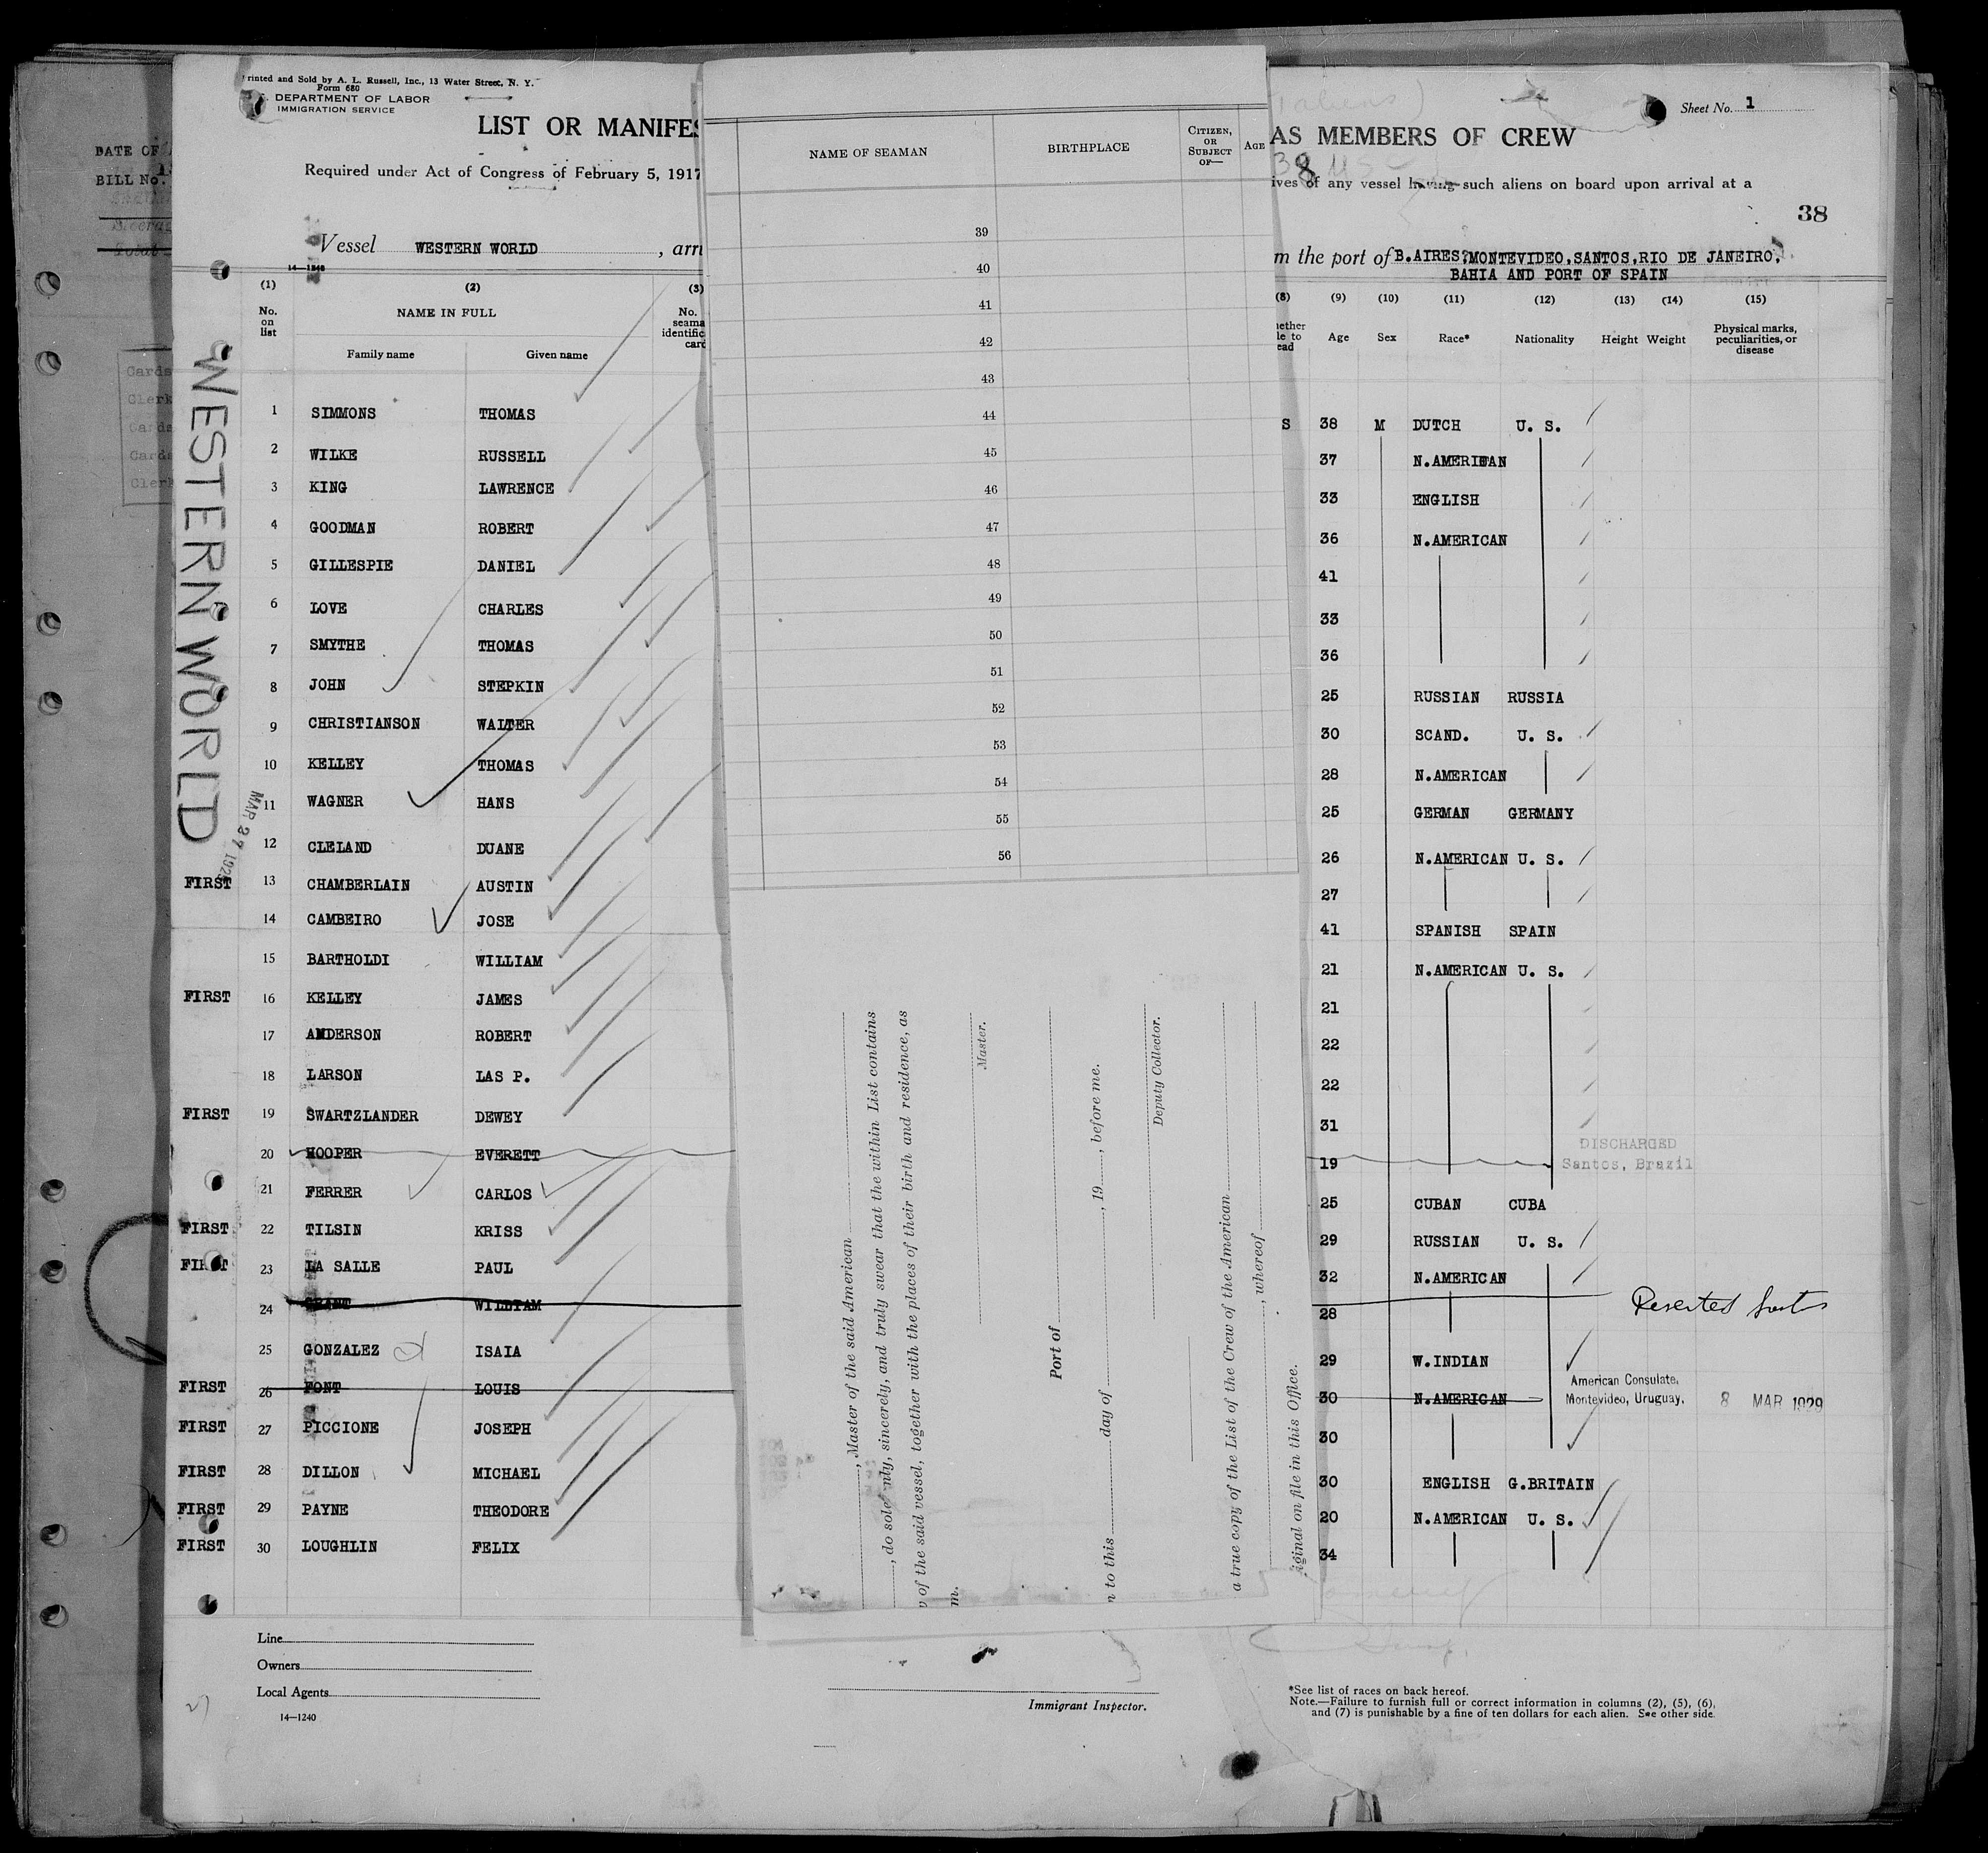 Printed and Sold by A. L. Russell, Inc., 13 Water Street, N. Y.
Form 680
DEPARTMENT OF LABOR
IMMIGRATION SERVICE
LIST OR MANIFES
Required under Act of Congress of February 5, 1917
Vessel WESTERN WORLD , arri
14—1240
(1) (2) (3)
No. on list
NAME IN FULL
No. seama identific card
Family name Given name
1 SIMMONS THOMAS
2 WILKE RUSSELL
3 KING LAWRENCE
4 GOODMAN ROBERT
5 GILLESPIE DANIEL
6 LOVE CHARLES
7 SMYTHE THOMAS
8 JOHN STEPKIN
9 CHRISTIANSON WALTER
10 KELLEY THOMAS
11 WAGNER HANS
12 CLELAND DUANE
FIRST 13 CHAMBERLAIN AUSTIN
14 CAMBEIRO JOSE
15 BARTHOLDI WILLIAM
FIRST 16 KELLEY JAMES
17 ANDERSON ROBERT
18 LARSON LAS P.
FIRST 19 SWARTZLANDER DEWEY
20 HOOPER EVERETT
21 FERRER CARLOS
FIRST 22 TILSIN KRISS
FIRST 23 LA SALLE PAUL
24 GRANT WILLIAM
25 GONZALEZ ISAIA
FIRST 26 FONT LOUIS
FIRST 27 PICCIONE JOSEPH
FIRST 28 DILLON MICHAEL
FIRST 29 PAYNE THEODORE
FIRST 30 LOUGHLIN FELIX
Line
Owners
Local Agents
14—1240
WESTERN WORLD
MAR 27 192
DATE OF
BILL No.
Total
Cards
Clerk
Cards
Cards
Clerk
NAME OF SEAMAN BIRTHPLACE CITIZEN, OR SUBJECT OF— AGE
39
40
41
42
43
44
45
46
47
48
49
50
51
52
53
54
55
56
, Master of the said American
, do solemnly, sincerely, and truly swear that the within List contains
of the said vessel, together with the places of their birth and residence, as
m.
Master.
Port of
n to this day of , 19 , before me.
Deputy Collector.
a true copy of the List of the Crew of the American
, whereof
iginal on file in this Office.
Sheet No. 1
AS MEMBERS OF CREW
38
ives of any vessel having such aliens on board upon arrival at a
38
m the port of B.AIRES,MONTEVIDEO,SANTOS,RIO DE JANEIRO,
BAHIA AND PORT OF SPAIN
(8) (9) (10) (11) (12) (13) (14) (15)
hether le to ead
Age Sex Race* Nationality Height Weight
Physical marks, peculiarities, or disease
S 38 M DUTCH U. S.
37 N.AMERICAN
33 ENGLISH
36 N.AMERICAN
41
33
36
25 RUSSIAN RUSSIA
30 SCAND. U. S.
28 N.AMERICAN
25 GERMAN GERMANY
26 N.AMERICAN U. S.
27
41 SPANISH SPAIN
21 N.AMERICAN U. S.
21
22
22
31
DISCHARGED
19 Santos, Brazil
25 CUBAN CUBA
29 RUSSIAN U. S.
32 N.AMERICAN
28 Deserted
29 W.INDIAN
American Consulate,
30 N.AMERICAN Montevideo, Uruguay, 8 MAR 1929
30
30 ENGLISH G.BRITAIN
20 N.AMERICAN U. S.
34
Immigrant Inspector.
*See list of races on back hereof.
Note.—Failure to furnish full or correct information in columns (2), (5), (6),
and (7) is punishable by a fine of ten dollars for each alien. See other side.